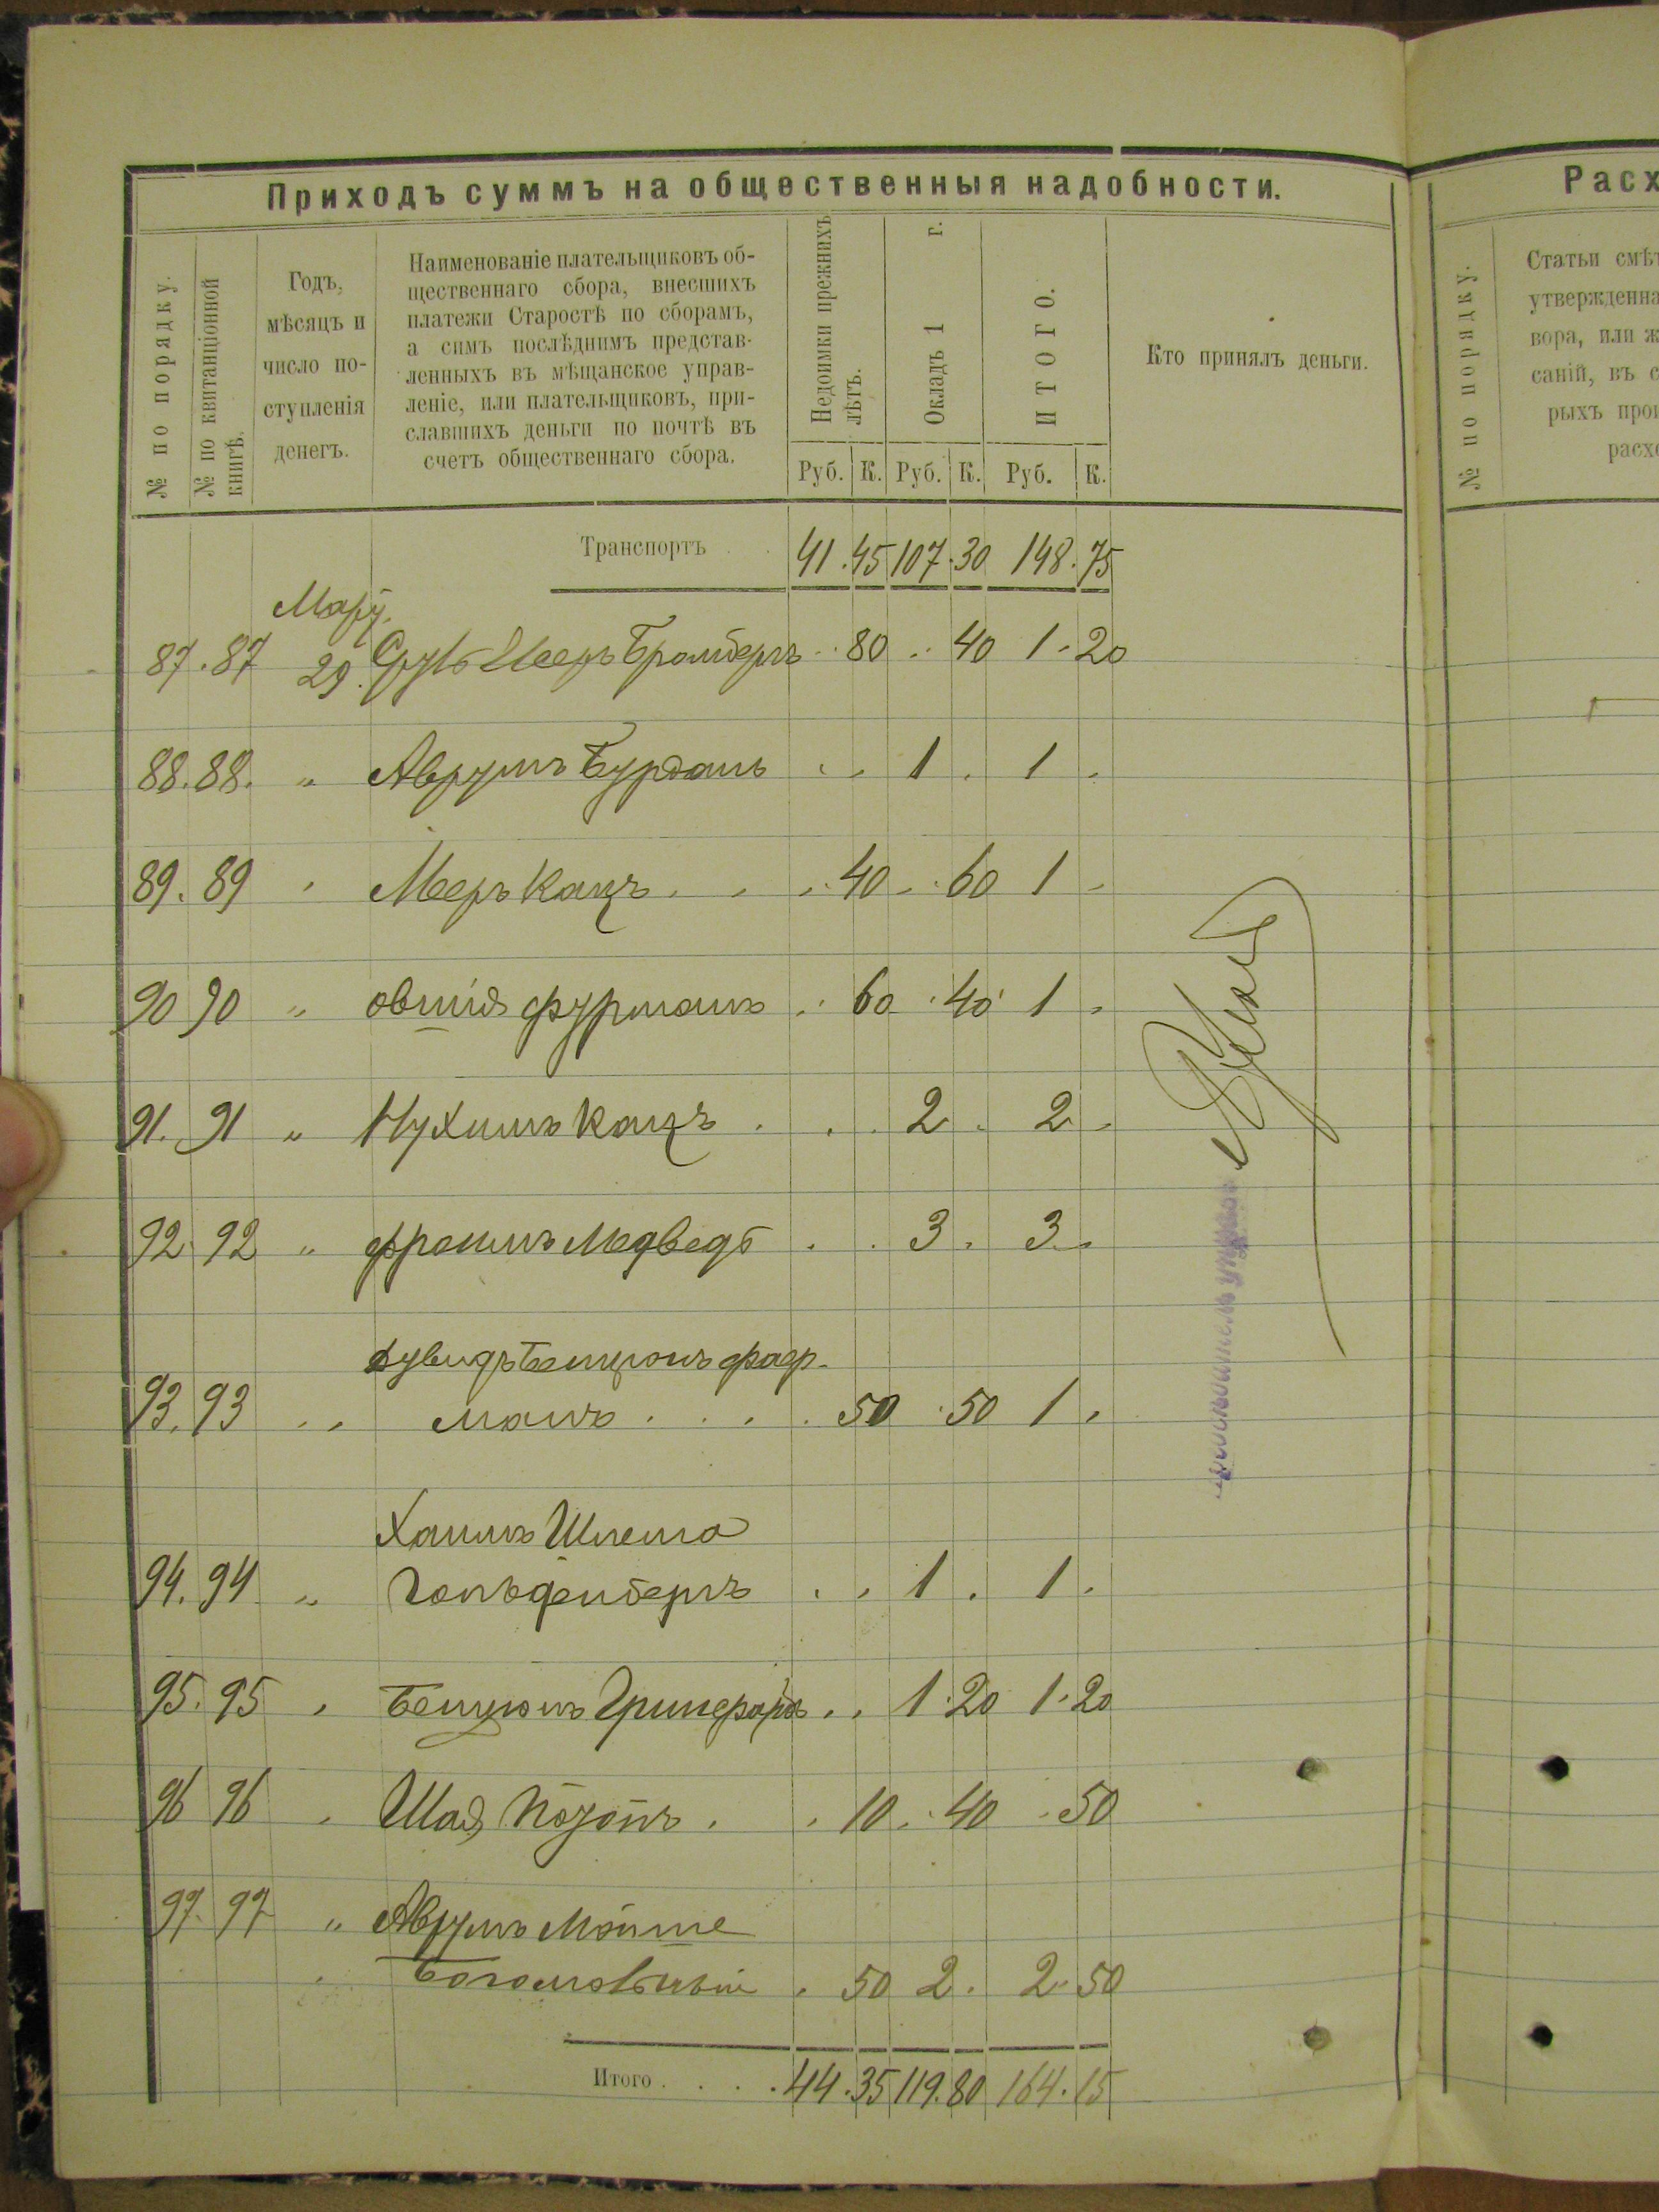 Приходъ суммъ на общественныя надобности.
№ по порядку.
№ по квитанціонной
книгѣ.
Годъ,
мѣсяцъ и
число по-
ступленія
денегъ.
Наименованіе плательщиковъ об-
щественнаго сбора, внесшихъ
платежи Старостѣ по сборамъ,
а симъ послѣднимъ представ-
ленныхъ въ мѣщанское управ-
леніе, или плательщиковъ, при-
славшихъ деньги по почтѣ въ
счетъ общественнаго сбора.
Недоимки прежнихъ
лѣтъ.
Окладъ 1 г.
ИТОГО.
Руб. К. Руб. К. Руб. К.
Кто принялъ деньги.
Транспортъ . . 41.45 107.30 148.75
87.87 29. . . 80 . . 40 1.20
88.88. „ Аврумъ Бурданъ . . 1 . 1 .
89.89 „ Мееръ Кацъ . . . . 40 . . 60 1 .
90 90 „ Овшія Фурманъ . . 60 . 40 1 .
91. 91 „ Нухимъ Кацъ . . . 2 . 2 .
92 92 „ Фроимъ Медведь . . 3 . 3 .
Дувидъ Бенціонъ Фаер-
93.93 „ манъ . . . . 50 . 50 1 .
Хаимъ Шлема
94.94 „ Гольденбергъ . . 1 . 1 .
95.95 „ Бенціонъ . . 1.20 1.20
96 96 „ Шая . . 10 . . 40 . 50
97. 97 „ Аврумъ Мойше
Богомольный . 50 2 . 2.50
Итого . . . . 44.35 119.80 164.15
Расх
№ по порядку.
Статьи смѣт
утвержденна
вора, или ж
саній, въ с
рыхъ прои
расхо